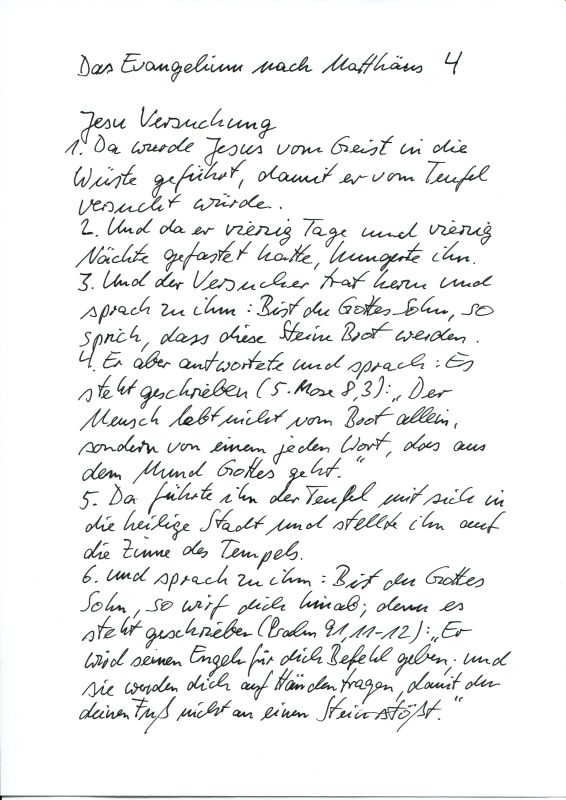 Das Evangelium nach Matthäus 4
Jesu Versuchung
1. Da wurde Jesus vom Geist in die
Wüste geführt, damit er vom Teufel
versucht würde.
2. Und da er vierzig Tage und vierzig
Nächte gefastet hatte, hungerte ihn.
3. Und der Versucher trat herzu und
sprach zu ihm: Bist du Gottes Sohn, so
sprich, dass diese Steine Brot werden.
4. Er aber antwortete und sprach: Es
steht geschrieben (5. Mose 8,3): „Der
Mensch lebt nicht vom Brot allein,
sondern von einem jeden Wort, das aus
dem Mund Gottes geht.“
5. Da führte ihn der Teufel mit sich in
die heilige Stadt und stellte ihn auf
die Zinne des Tempels.
6. und sprach zu ihm: Bist du Gottes
Sohn, so wirf dich hinab; denn es
steht geschrieben (Psalm 91,11-12): „Er
wird seinen Engeln für dich Befehl geben; und
sie werden dich auf Händen tragen, damit du
deinen Fuß nicht an einen Stein stößt.“